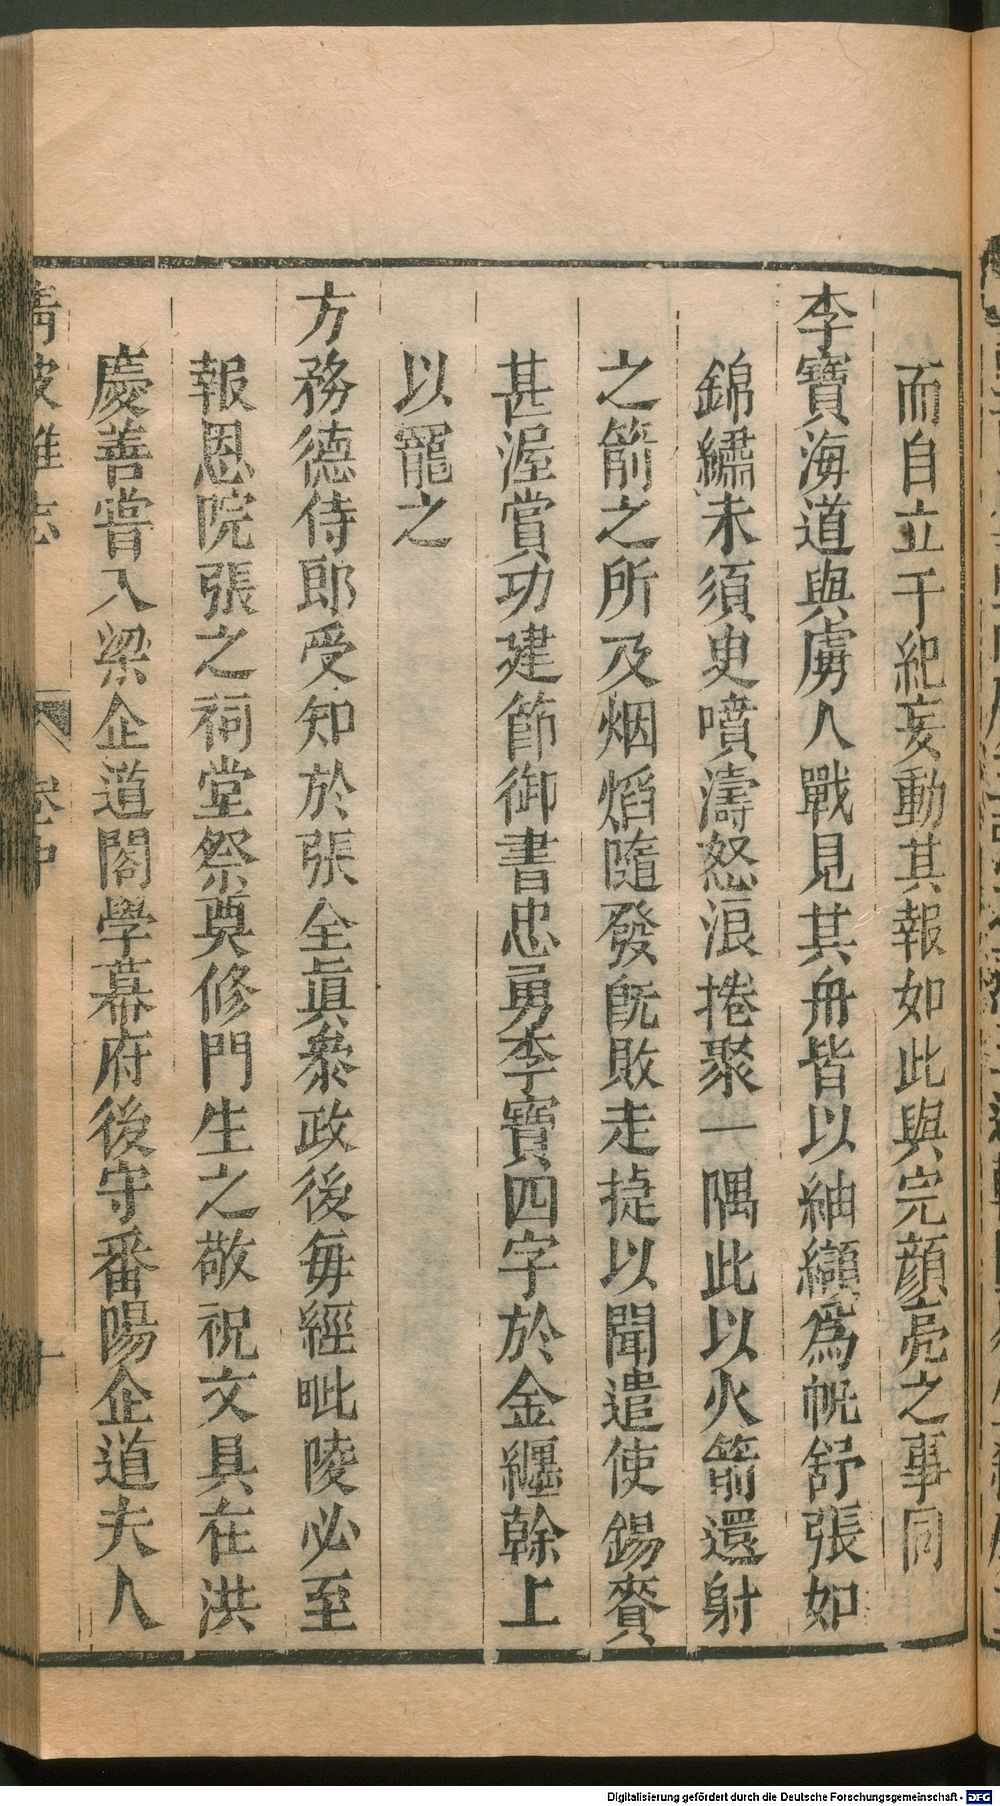 而自立干紀妄動其報如此與完顏亮之事同
李寶海道與虜人戰見其舟皆以紬纈爲帆舒張如
錦繡未須臾噴濤怒浪捲聚一隅此以火箭還射
之箭之所及烟焰隨發旣敗走捷以聞遣使錫賚
甚渥賞功建節御書忠勇李寶四字於金纏幹上
以寵之
方務德侍郎受知於張全眞叅政後每經毗陵必至
報恩院張之祠堂祭奠修門生之敬祝文具在洪
慶善嘗入梁企道閣學幕府後守番陽企道夫人
清波雜志 卷中 十
Digitalisierung gefördert durch die Deutsche Forschungsgemeinschaft - DFG